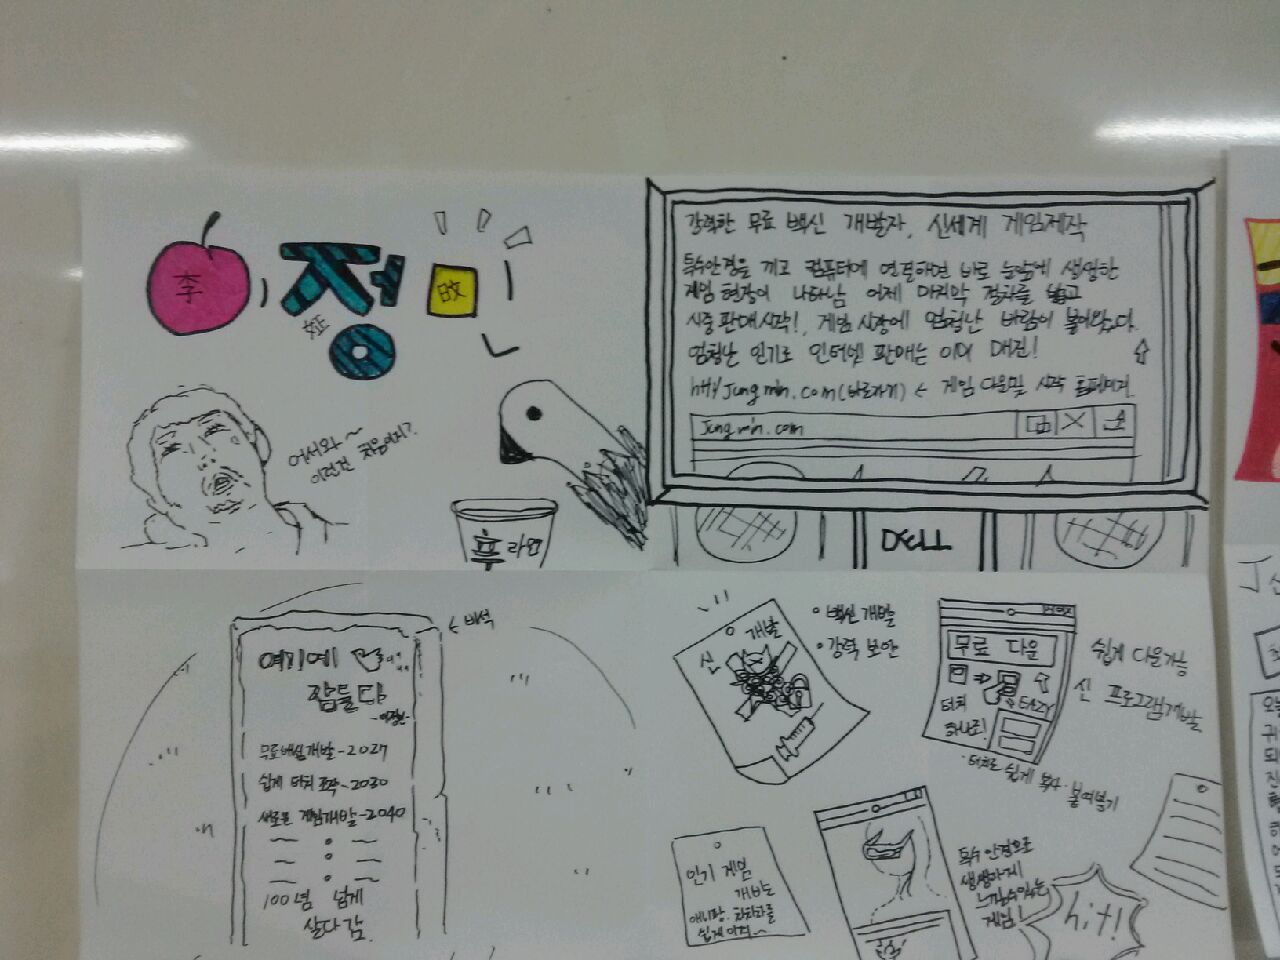 李
정
민
어서와~
이런건 처음이지?
휴라인
강력한 무료 백신 개발자, 신세계 게임제작
특수안경을 끼고 컴퓨터에 연결하면 바로 눈앞에 생생한
게임 현장이 나타남 어제 마지막 절차를 밟고
시중 판매시작!, 게임 시장에 엄청난 바람이 불어왔다.
엄청난 인기로 인터넷 판매는 이미 매진!
jungmin.com(바로가기) ← 게임 다운및 시작 홈페이지.
Jungmin.com
DELL
← 비석
여기에
잠들다
무료백신개발-2027
쉽게 터치 조작-2030
새로운 게임개발-2040
100년 넘게
살다감.
신 개발
• 백신 개발
• 강력 보안
무료 다운
터치
하나로!
EAZY
쉽게 다운가능
신 프로그램개발
• 터치로 쉽게 복사·붙여넣기
인기 게임
개발는
애니팡, 차차차를
쉽게 이겨~
특수 안경으로
생생하게
느낄수있는
게임!
hit!